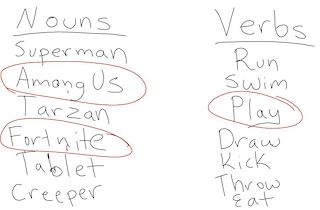 Nouns
Superman
Among Us
Tarzan
Fortnite
Tablet
Creeper
Verbs
Run
Swim
Play
Draw
Kick
Throw
Eat